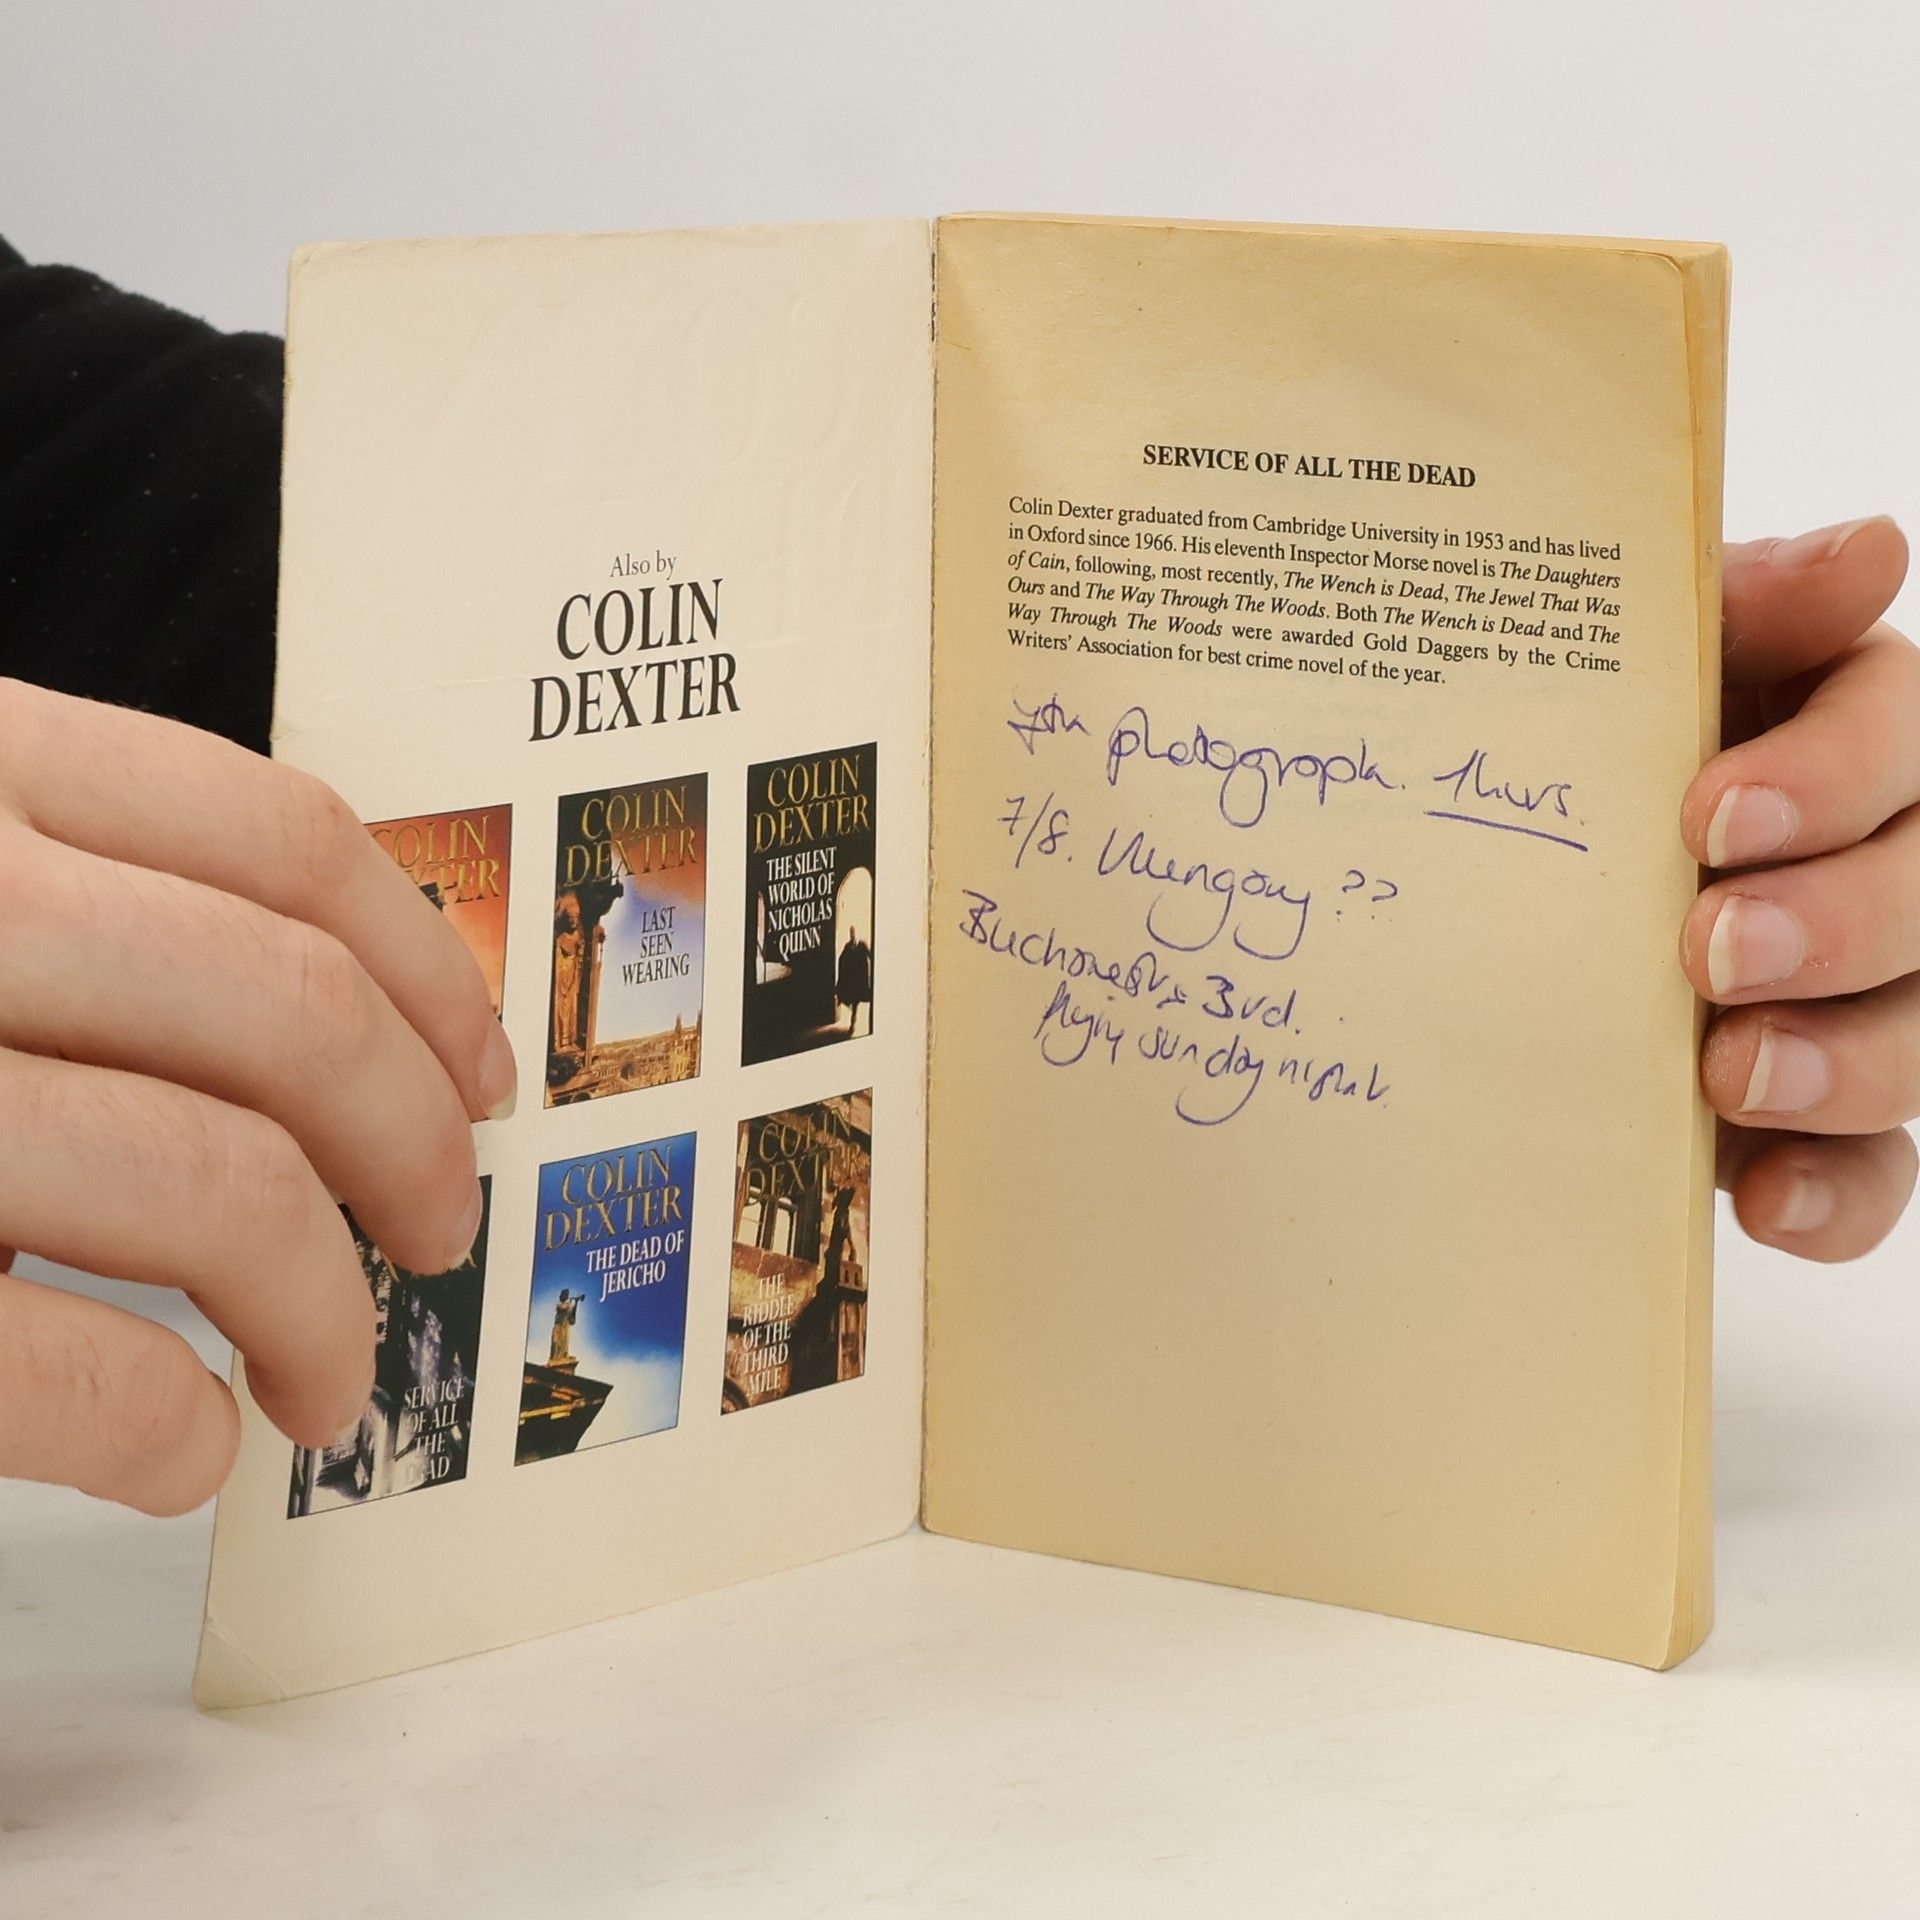 Also by
COLIN
DEXTER
COLIN
DEXTER
COLIN
DEXTER
LAST
SEEN
WEARING
COLIN
DEXTER
THE SILENT
WORLD OF
NICHOLAS
QUINN
SERVICE
OF ALL
THE
DEAD
COLIN
DEXTER
THE DEAD OF
JERICHO
COLIN
DEXTER
THE
RIDDLE
OF THE
THIRD
MILE
SERVICE OF ALL THE DEAD
Colin Dexter graduated from Cambridge University in 1953 and has lived
in Oxford since 1966. His eleventh Inspector Morse novel is The Daughters
of Cain, following, most recently, The Wench is Dead, The Jewel That Was
Ours and The Way Through The Woods. Both The Wench is Dead and The
Way Through The Woods were awarded Gold Daggers by the Crime
Writers' Association for best crime novel of the year.
photograph. Thurs.
7/8. ??
Bucharest Bvd.
flying sunday night.